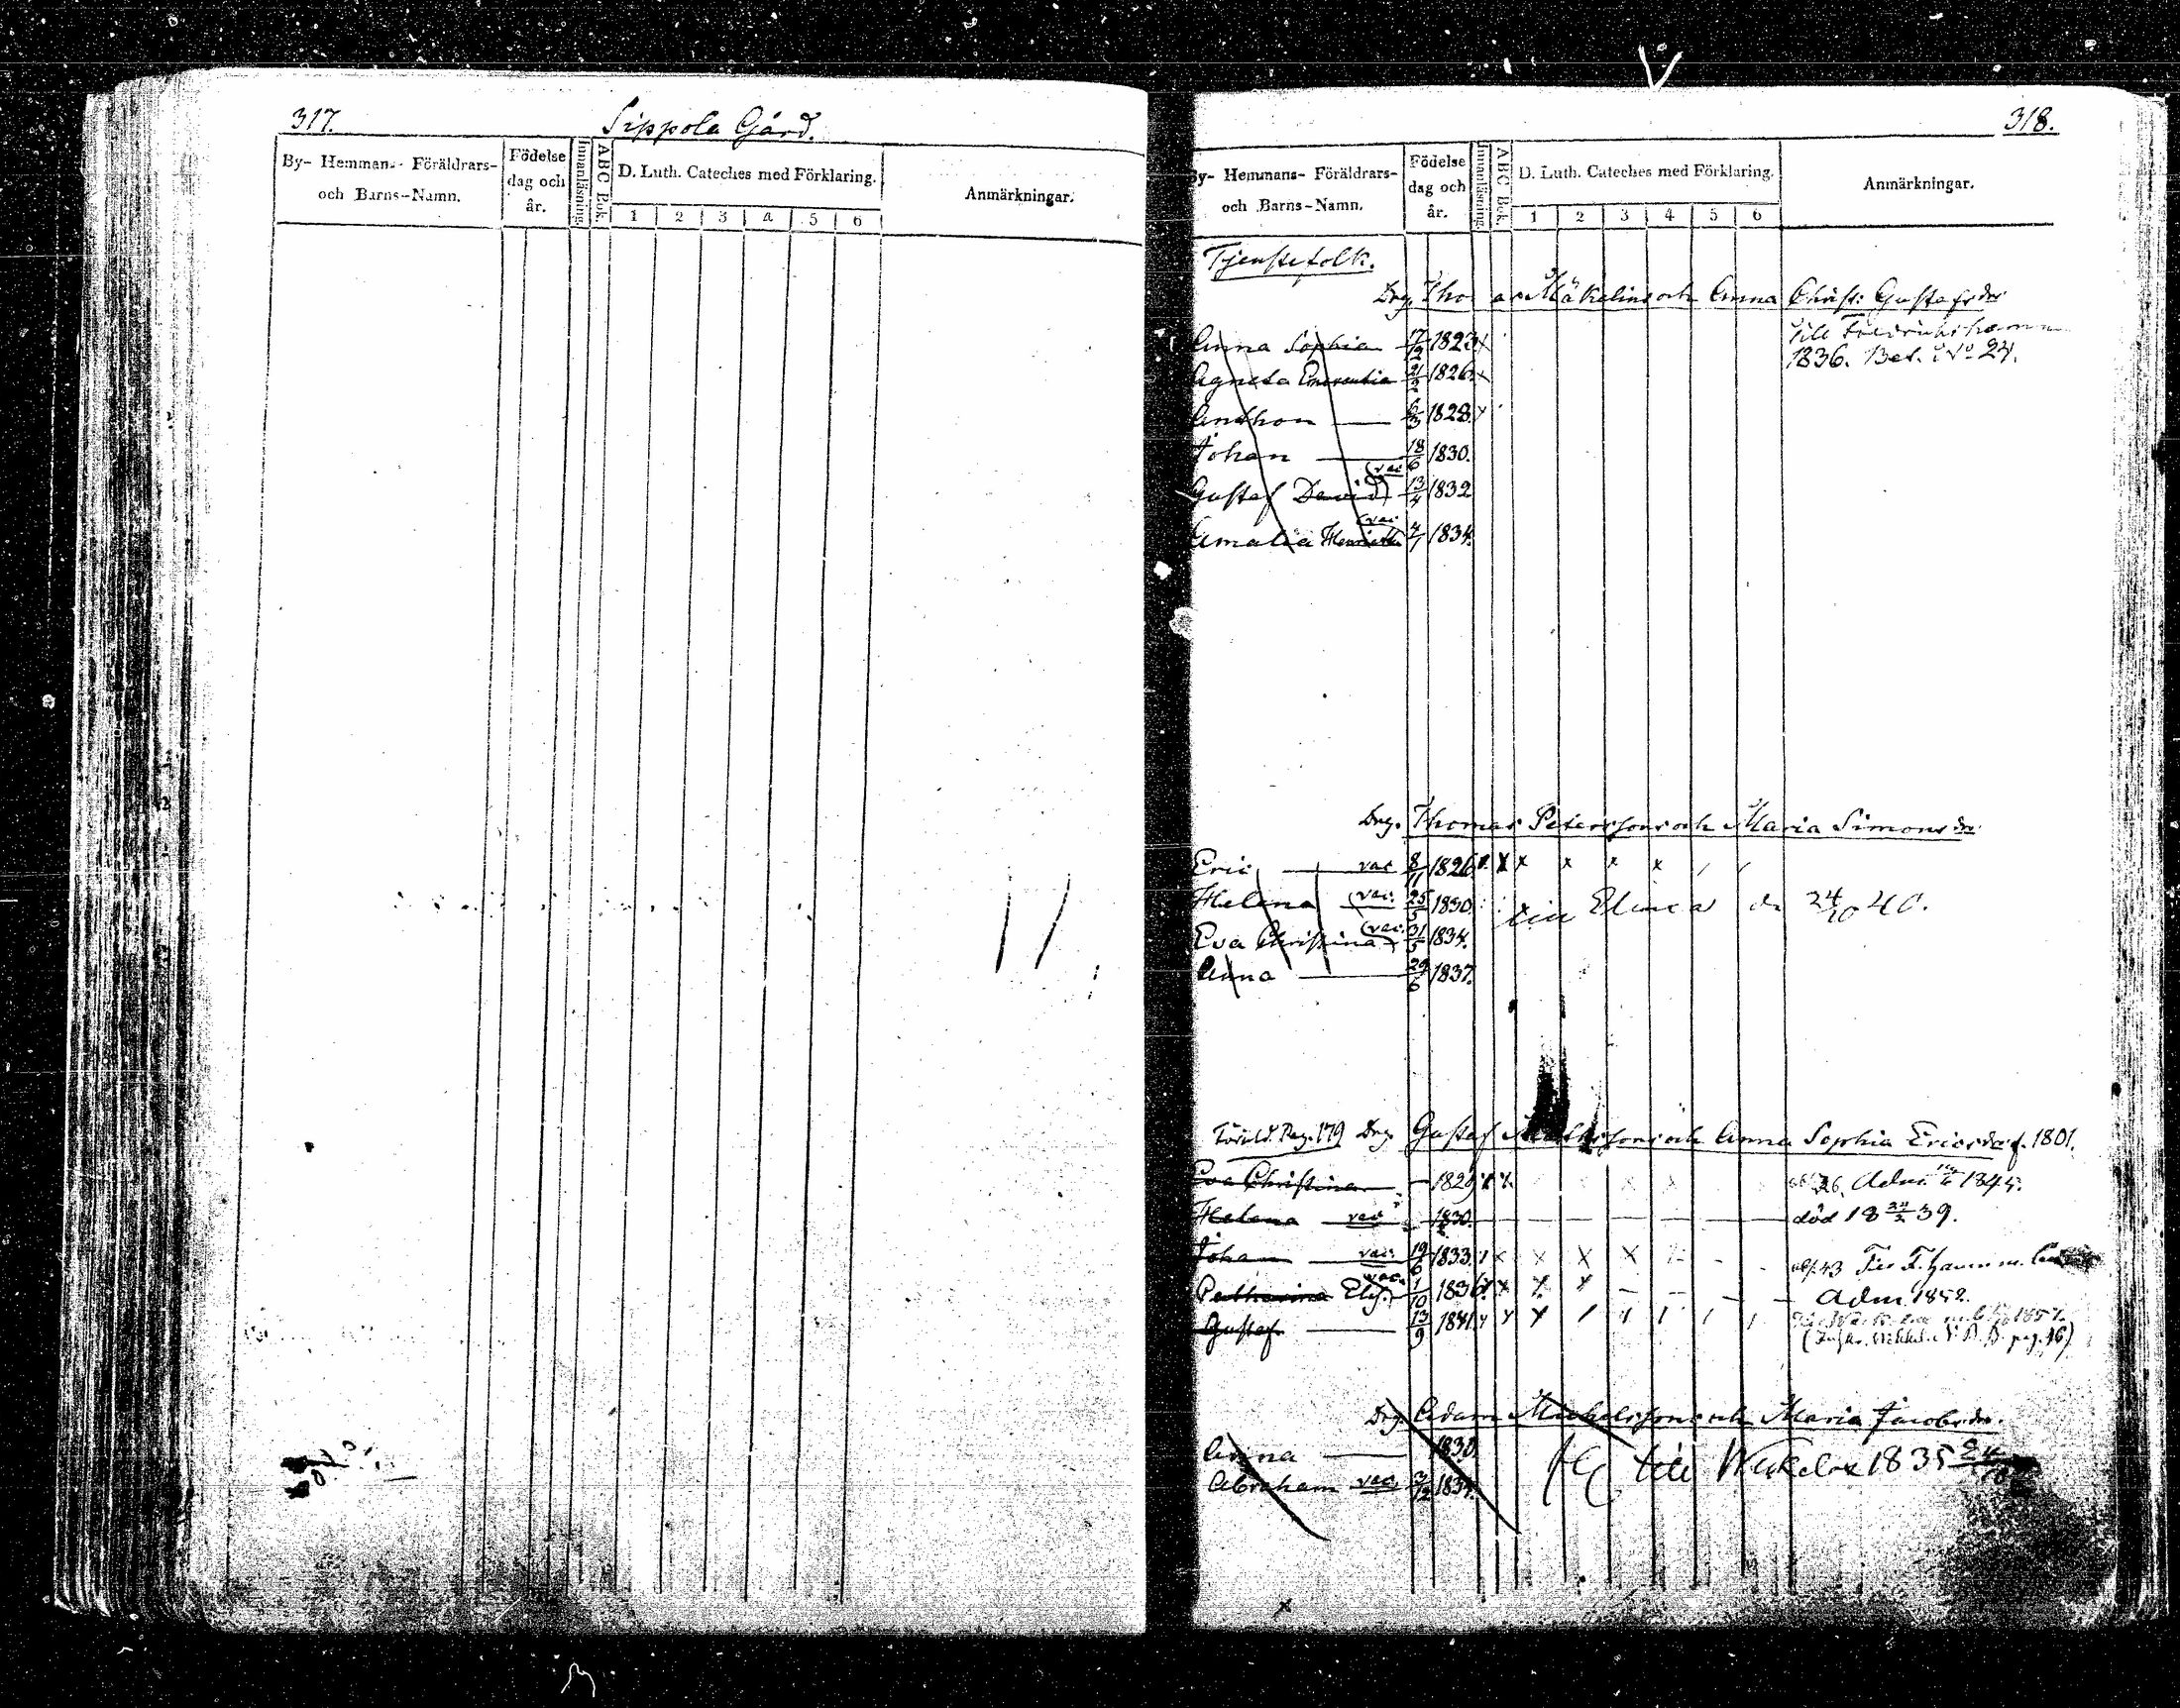 317.
Sippola Gård.
By- Hemmans- Föräldrars- och Barns-Namn.
Födelse dag och år.
Innanläsning.
ABC Bok.
D. Luth. Cateches med Förklaring.
1 2 3 4 5 6
Anmärkningar.
318.
By- Hemmans- Föräldrars- och Barns-Namn.
Födelse dag och år.
Innanläsning.
ABC Bok.
D. Luth. Cateches med Förklaring.
1 2 3 4 5 6
Anmärkningar.
Tjenstefolk.
Drg. Thomas Mäkelins och Anna Christ: Gustafsdr
Till Fredrikshamn
Anna Sophia 17/12 1823 x
1836. Bet. No 24.
Agneta Emerentia 21/2 1826 x
Anthon 6/3 1828 x
Johan 18/6 1830.
Gustaf David (vac 13/4 1832
Amalia Henrietta (vac 4/1 1834.
Drg. Thomas Peterssons och Maria Simonsdr
Eric vac 8/11 1826 x x x x x
Helena (vac. 25/5 1830. till Elimä 24/10 40.
Eva Christina (vac. 31/5 1834.
Anna 29/6 1837.
Föräld. Pag. 179 Drg. Gustaf och Anna Sophia Ericsdr f. 1801.
Eva Christina 1829 Adm. 1845.
Helena vac 1830. död 18 39.
Johan vac. 19/6 1833. x x x x
Catharina Elis. vac. 1/10 1836 x x x Adm. 1852.
Gustaf 13/9 1841. 1857.
pag. 46)
Drg. Adam Michelssons och Maria Jacobsdr.
Anna 1830. till 1835
Abraham vac. 3/12 1834.